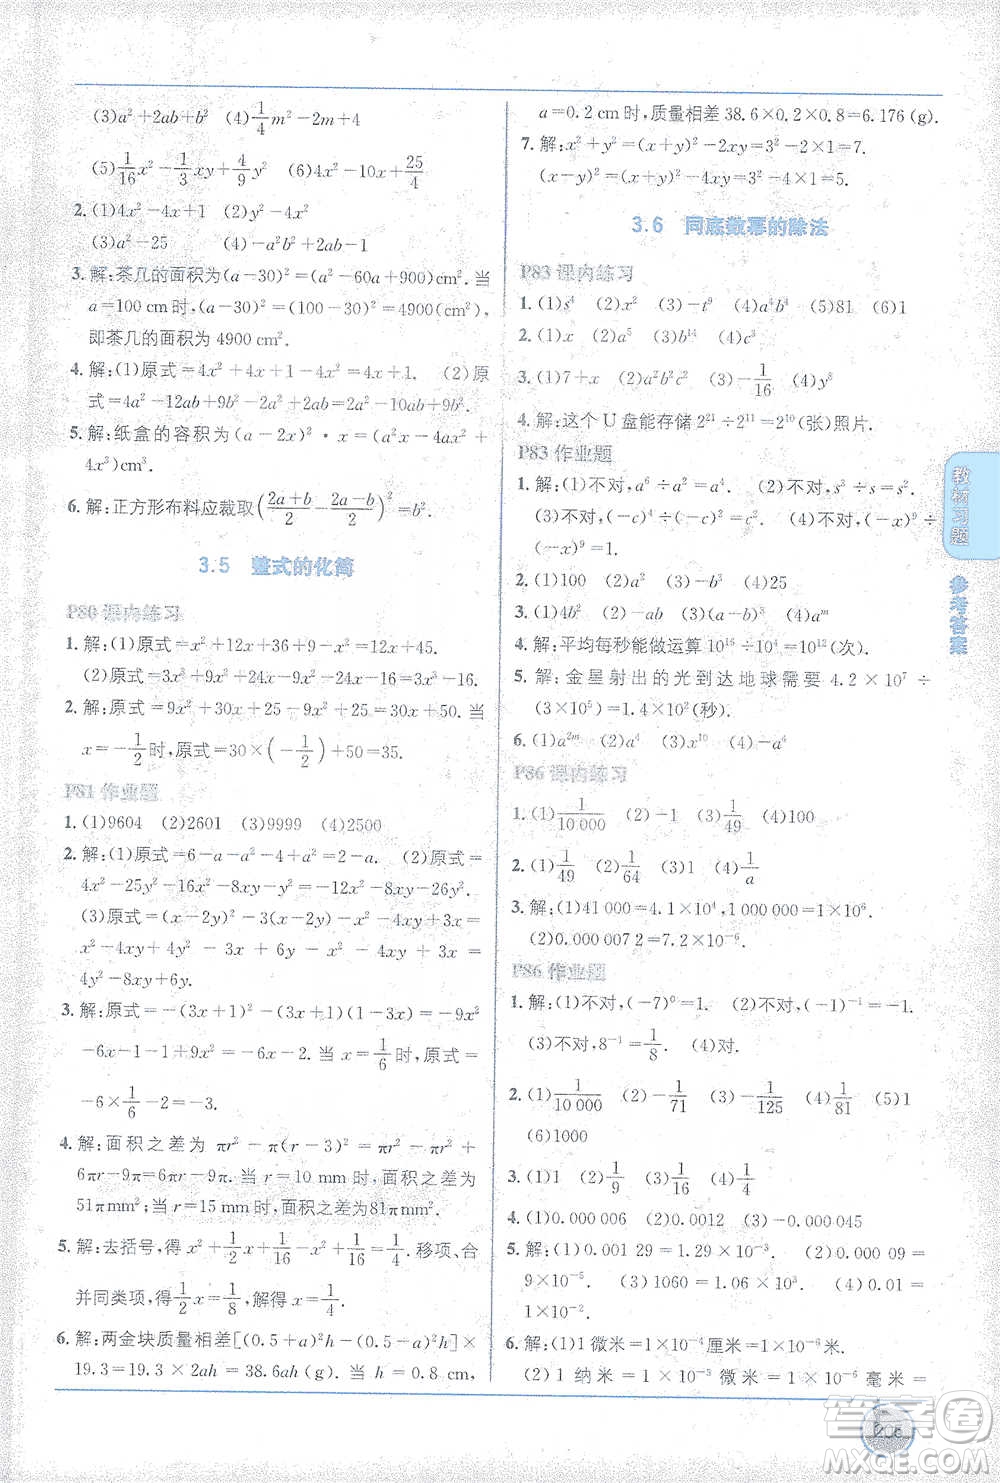 (3)a²+2ab+b²　(4)1/4m²-2m+4
(5)1/16x²-1/3xy+4/9y²　(6)4x²-10x+25/4
2.(1)4x²-4x+1　(2)y²-y
(3)a²-25　(4)-2x
3.解:茶几的面积为(a-30)²=(a²-60a+900)cm².当
a=100 cm时,(a-30)²=(100-30)²=4900(cm²),
即茶几的面积为 4900 cm².
4.解:(1)原式=4x²+4x+1-4x=4x²+1.　(2)原
式=4a²-12ab+9b²-8ab=4a²-20ab+9b².
5.解:纸盒的容积为(a-2x)²·x=(a²x-4ax²+
4x³)cm³.
6.解:正方形布料应裁取((2a+b)/2-(2a-b)/2)²=b².
3.5　整式的化简
P80 课内练习
1.解:(1)原式=x²+12x+36+9=x²+12x+45.
(2)原式=4x²-16-3x²-3x=x²-3x-16.
2.解:原式=9x²+30x+25+25-9x²=30x+50.当
x=-1/2时,原式=30×(-1/2)+50=35.
P81 作业题
1.(1)9604　(2)2601　(3)9999　(4)2500
2.解:(1)原式=6-a-a²-4+a²=2-a.　(2)原式=
4x²-25y²-4x²-8xy-y²=-8xy-26y².
(3)原式=(x-2y)²-(x-2y)(x+3)=
x²-4xy+4y²-x²-3x+2xy+6y=
4y²-2xy-3x+6y.
3.解:原式=-(3x+1)²-(3x+1)(1-3x)=-9x²
-6x-1-1+9x²=-6x-2.当 x=1/6时,原式=
-6×1/6-2=-3.
4.解:面积之差为 πr²-π(r-3)²=πr²-πr²+
6πr-9π=6πr-9π.当 r=10 mm时,面积之差为
51π mm²;当 r=15 mm时,面积之差为81π mm².
5.解:去括号,得 x²+1/2x+1/16=x²-1/2x+1/16.
并同类项,得
6.解:两金块质量相差[(0.5+a)²h-(0.5-a)²h]×
19.3=19.3×2ah=38.6ah(g).当 h=0.8 cm,
a=0.2 cm时,质量相差 38.6×0.2×0.8=6.176(g).
7.解:x²+y²=(x+y)²-2xy=3²-2×1=7.
(x-y)²=(x+y)²-4xy=3²-4×1=5.
3.6　同底数幂的除法
P83 课内练习
1.(1)s⁴　(2)x²　(3)-t⁹　(4)a⁴b⁴　(5)81　(6)1
2.(1)x　(2)a⁵　(3)b¹⁴　(4)-y²
3.(1)7+x　(2)a²b²c²　(3)-1/16　(4)y⁸
4.解:这个 U 盘能存储 2²¹÷2¹¹=2¹⁰(张)照片.
P83 作业题
1.解:(1)不对,a⁶÷a=a⁵.　(2)不对,s³÷s=s².
(3)不对,(-x)⁹÷
(-x)⁹=1.
2.(1)100　(2)x²　(3)-a²　(4)25
3.(1)4b²　(2)-ab　(3)　(4)aᵐ
4.解:平均每秒能做运算 10¹⁶÷10⁴=10¹²(次).
5.解:金星射出的光到达地球需要 4.2×10⁷÷
(3×10⁵)=1.4×10²(秒).
6.(1)a²ᵐ　(2)a⁴　(3)x¹⁰　(4)-a⁶
P86 课内练习
1.(1)1/10 000　(2)-1　(3)1/49　(4)100
2.(1)1/49　(2)1/64　(3)1　(4)1/a
3.解:(1)41 000=4.1×10⁴,1000000=1×10⁶.
(2)0.000 007 2=7.2×10⁻⁶.
P86 作业题
1.解:(1)不对,(-7)⁰=1.　(2)不对,(-1)⁻¹=-1.
(3)不对,8⁻¹=1/8.　(4)对.
2.(1)1/10 000　(2)-1/71　(3)-1/125　(4)1/81　(5)1
(6)1000
3.(1)1　(2)1/9　(3)1/16　(4)1/4
4.(1)0.000 005　(2)0.0012　(3)-0.000 045
5.解:(1)0.001 29=1.29×10⁻³.　(2)0.000 09=
9×10⁻⁵.　(3)1060=1.06×10³.　(4)
6.解:(1)1 微米=1×10⁻⁴ 厘米=1×10⁻⁶ 米.
(2)1 纳米=1×10⁻³ 微米=1×10⁻⁶ 毫米=
教材习题
参考答案
答案圈
MXQE.COM